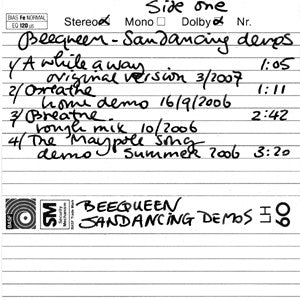 Side one
BIAS Fe NORMAL
EQ 120 µs
Stereo Mono Dolby Nr.
Beequeen - Sandancing demos
1/ A while away 1:05
original version 3/2007
2/ Breathe 1:11
home demo 16/9/2006
3/ Breathe 2:42
rough mix 10/2006
4/ The Maypole Song
demo Summer 2006 3:20
BASF
SM
Security
Mechanism
BASF Trade Mark
BEEQUEEN
SANDANCING DEMOS
LH
60